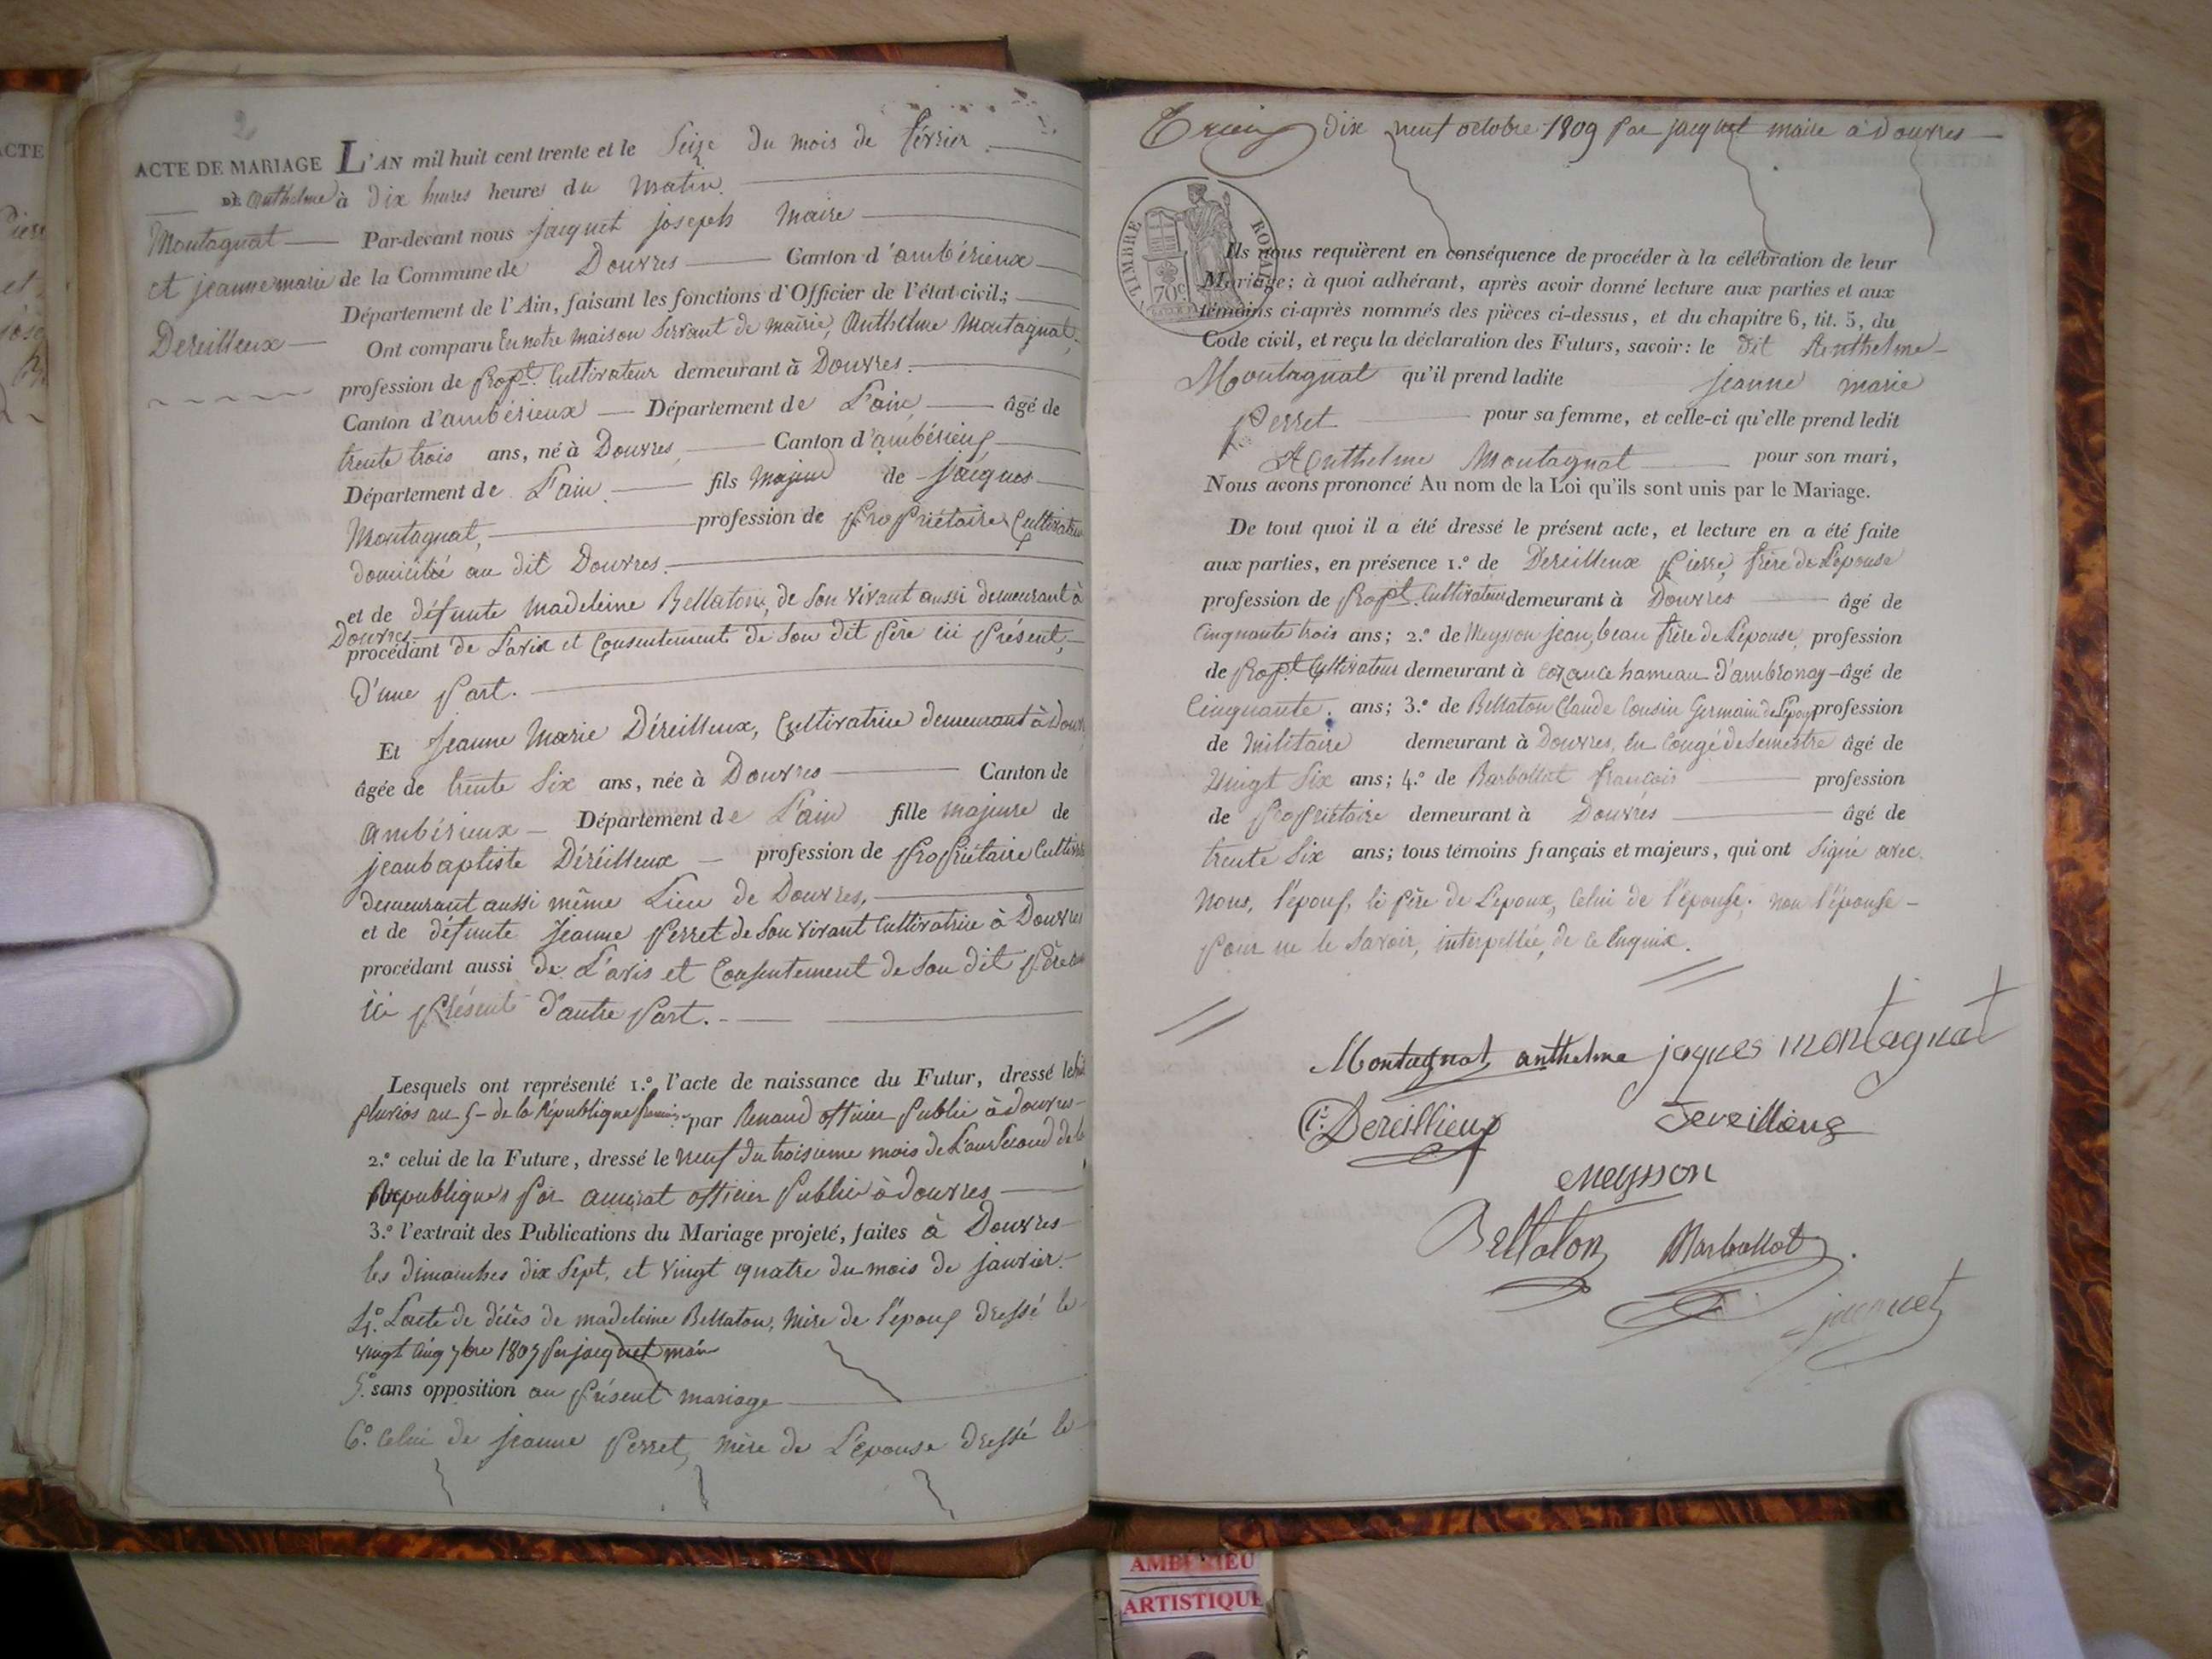 2
ACTE DE MARIAGE
DE Anthelme
Montagnat
et jeanne marie
Dereilleux
L'AN mil huit cent trente et le Seize du mois de février
à dix heures heures du matin.
Par-devant nous Jacquet joseph Maire
de la Commune de Douvres Canton d'ambérieux
Département de l'Ain, faisant les fonctions d'Officier de l'état-civil;
Ont comparu En notre maison Servant de mairie, Anthelme Montagnat,
profession de Propt. Cultivateur demeurant à Douvres.
Canton d'ambérieux Département de L'ain, âgé de
trente trois ans, né à Douvres, Canton d'ambérieux
Département de L'ain fils Majeur de Jacques
Montagnat, profession de Propriétaire Cultivateur
domicilié au dit Douvres.
et de défunte Madeleine Bellaton, de Son vivant aussi demeurant à
Douvres
procédant de L'avis et Consentement de Son dit Père ici Présent,
D'une Part.
Et Jeanne Marie Déreilleux, Cultivatrice demeurant à Douvres
âgée de trente Six ans, née à Douvres Canton de
Ambérieux Département de L'ain fille majeure de
jeanbaptiste Déréilleux profession de Propriétaire Cultiv
demeurant aussi même Lieu de Douvres,
et de défunte Jeanne Perret de Son vivant Cultivatrice à Douvres
procédant aussi de L'avis et Consentement de Son dit Père
ici Présent D'autre Part.
Lesquels ont représenté 1.º l'acte de naissance du Futur, dressé le
pluvios an 5 de la République par Renaud officier Public à Douvres
2.º celui de la Future, dressé le neuf du troisieme mois de L'an Second de la
Republique Par officier Public à douvres
3.º l'extrait des Publications du Mariage projeté, faites à Douvres
les dimanches dix Sept, et vingt quatre du mois de janvier.
4.º L'acte de décès de madeleine Bellaton, mère de l'époux dressé le
vingt Cinq 7bre 1807 Par jacquet maire
5.º sans opposition au Présent mariage
6.º Celui de Jeanne Perret, mère de L'épouse dressé le
dix neuf octobre 1809 Par jacquet maire à Douvres
TIMBRE ROYAL
70c
Ils nous requièrent en conséquence de procéder à la célébration de leur
Mariage; à quoi adhérant, après avoir donné lecture aux parties et aux
témoins ci-après nommés des pièces ci-dessus, et du chapitre 6, tit. 5, du
Code civil, et reçu la déclaration des Futurs, savoir: le dit Anthelme
Montagnat qu'il prend ladite jeanne marie
Perret pour sa femme, et celle-ci qu'elle prend ledit
Anthelme Montagnat pour son mari,
Nous avons prononcé Au nom de la Loi qu'ils sont unis par le Mariage.
De tout quoi il a été dressé le présent acte, et lecture en a été faite
aux parties, en présence 1.º de Dereilleux Pierre, frère de L'épouse
profession de Propt. Cultivateur demeurant à Douvres âgé de
Cinquante trois ans; 2.º de Meysson jean, beau frère de L'épouse, profession
de Propt. Cultivateur demeurant à hameau D'ambronay âgé de
Cinquante. ans; 3.º de Bellaton Claude Cousin Germain de L'époux profession
de Militaire demeurant à Douvres, En Congé de Semestre âgé de
Vingt Six ans; 4.º de Barbollat françois profession
de Propriétaire demeurant à Douvres âgé de
trente Six ans; tous témoins français et majeurs, qui ont Signé avec
nous, l'époux, le Père de L'époux, Celui de l'épouse; non l'épouse
Pour ne le Savoir, interpellée, de ce Enquise.
Montagnat anthelme jaques montagnat
P. Dereillieux Dereilleux
Meysson
Bellaton Barbollat
jacquet
AMBERIEU
ARTISTIQUE